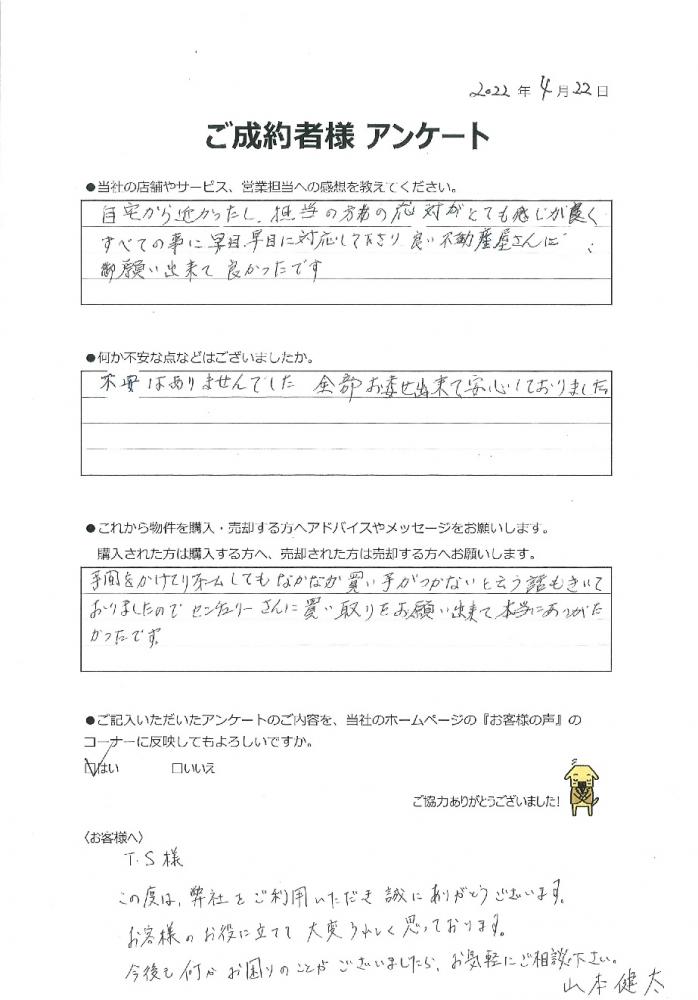 2022年4月22日
ご成約者様 アンケート
●当社の店舗やサービス、営業担当への感想を教えてください。
自宅から近かったし、担当の方の応対がとても感じが良く
すべての事に早目早目に対応して下さり 良い不動産屋さんに
御願い出来て 良かったです
●何か不安な点などはございましたか。
不安はありませんでした 全部お委せ出来て安心しておりました
●これから物件を購入・売却する方へアドバイスやメッセージをお願いします。
購入された方は購入する方へ、売却された方は売却する方へお願いします。
手間をかけてリホームしてもなかなか買い手がつかないと云う話もきいて
おりましたので センチュリーさんに買い取りをお願い出来て本当にありがた
かったです。
●ご記入いただいたアンケートのご内容を、当社のホームページの『お客様の声』の
コーナーに反映してもよろしいですか。
☑はい □いいえ
ご協力ありがとうございました!
〈お客様へ〉
T.S様
この度は、弊社をご利用いただき誠にありがとうございます。
お客様のお役に立てて大変うれしく思っております。
今後も何かお困りのことがございましたら、お気軽にご相談下さい。
山本健太